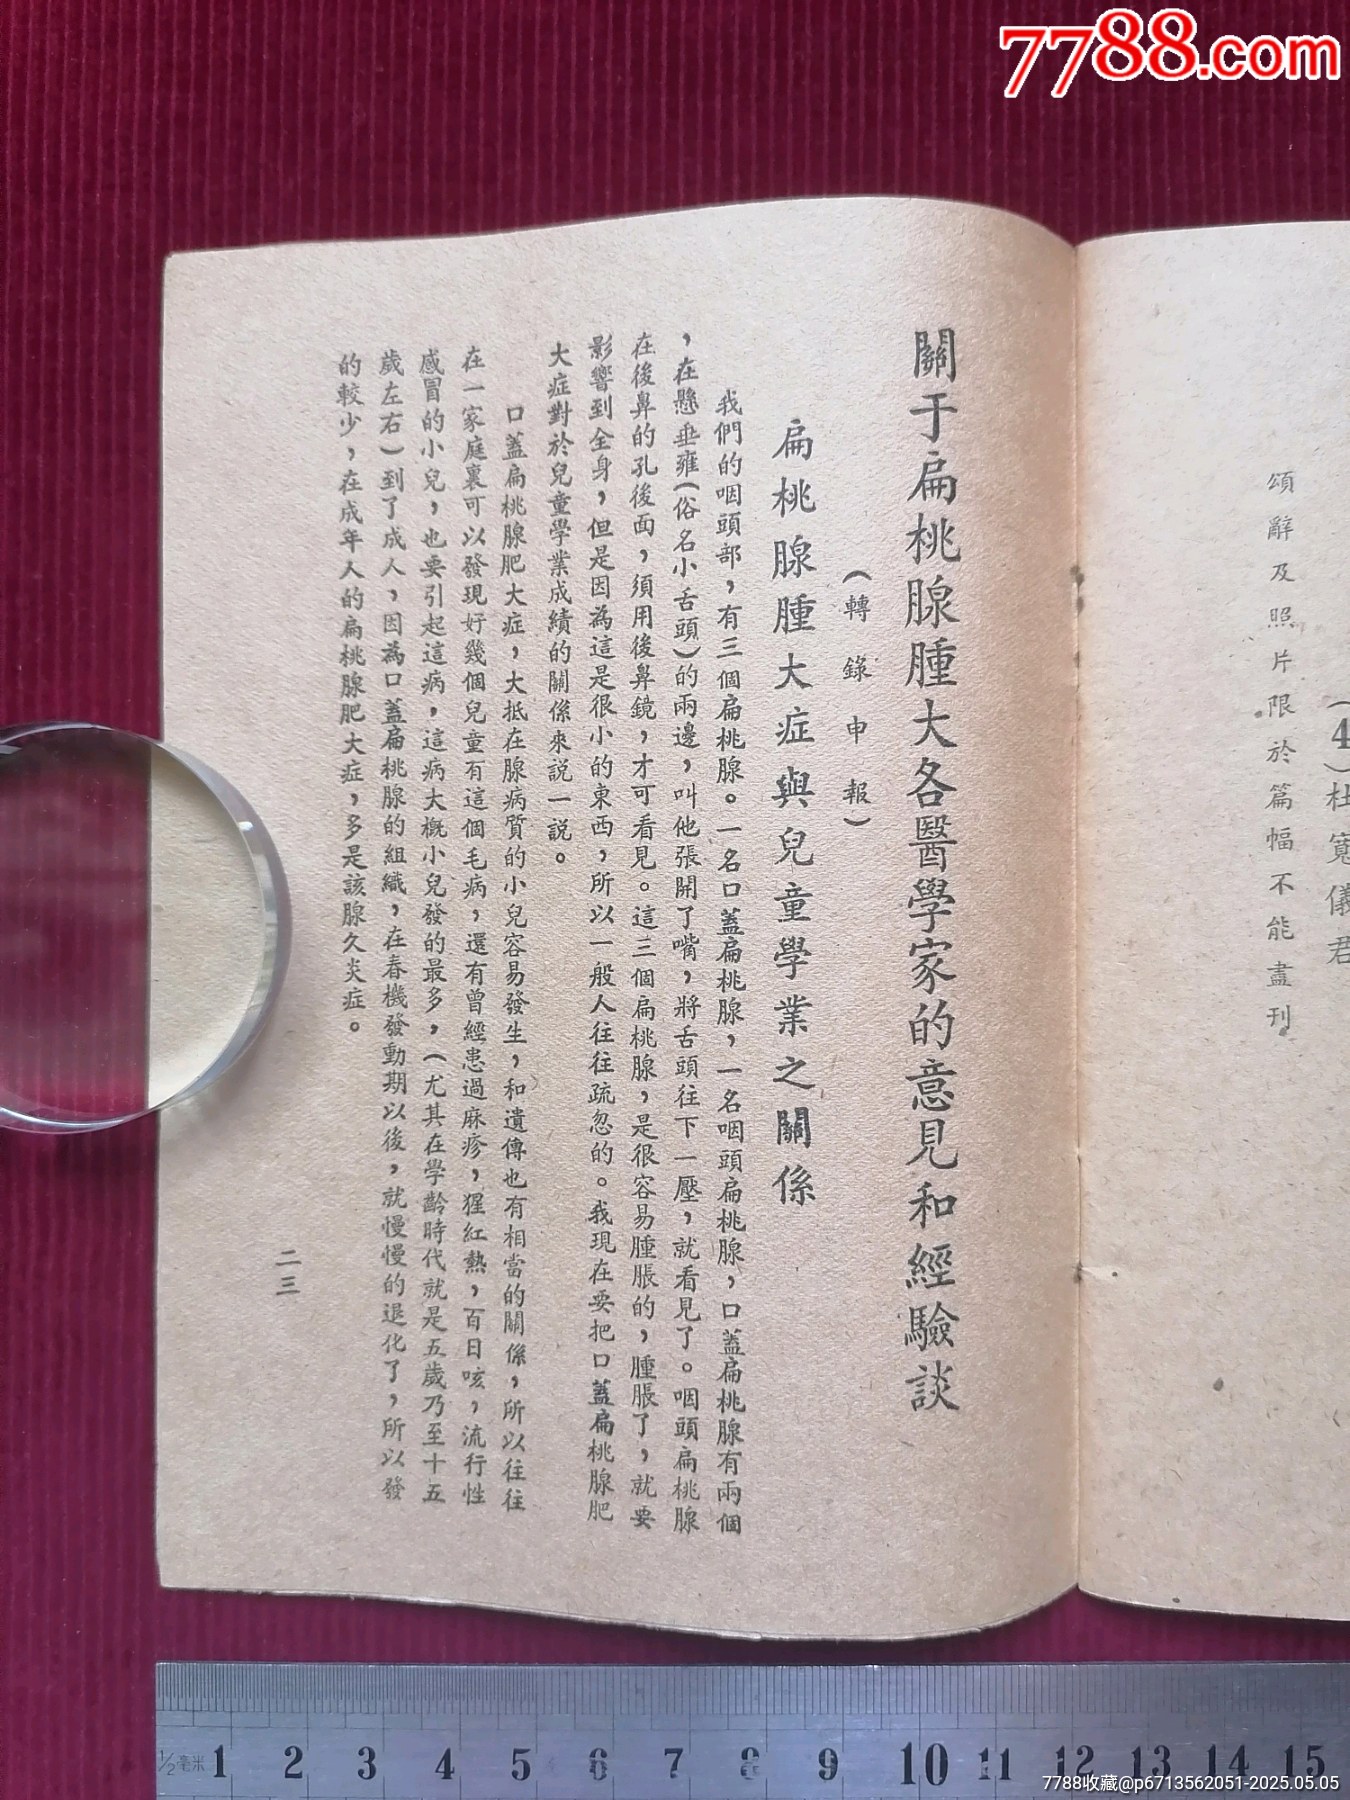 7788.com
(4)杜寬儀君
頌辭及照片限於篇幅不能盡刊
關于扁桃腺腫大各醫學家的意見和經驗談
(轉錄申報)
扁桃腺腫大症與兒童學業之關係
我們的咽頭部，有三個扁桃腺。一名口蓋扁桃腺，一名咽頭扁桃腺，口蓋扁桃腺有兩個
，在懸垂雍(俗名小舌頭)的兩邊，叫他張開了嘴，將舌頭往下一壓，就看見了。咽頭扁桃腺
在後鼻的孔後面，須用後鼻鏡，才可看見。這三個扁桃腺，是很容易腫脹的，腫脹了，就要
影響到全身，但是因為這是很小的東西，所以一般人往往疏忽的。我現在要把口蓋扁桃腺肥
大症對於兒童學業成績的關係來説一説。
口蓋扁桃腺肥大症，大抵在腺病質的小兒容易發生，和遺傳也有相當的關係，所以往往
在一家庭裏可以發現好幾個兒童有這個毛病，還有曾經患過麻疹，猩紅熱，百日咳，流行性
感冒的小兒，也要引起這病，這病大概小兒發的最多，(尤其在學齡時代就是五歲乃至十五
歲左右)到了成人，因為口蓋扁桃腺的組織，在春機發動期以後，就慢慢的退化了，所以發
的較少，在成年人的扁桃腺肥大症，多是該腺久炎症。
二三
1/2毫米 1 2 3 4 5 6 7 8 9 10 11 12 13 14 15
7788收藏@p6713562051-2025.05.05